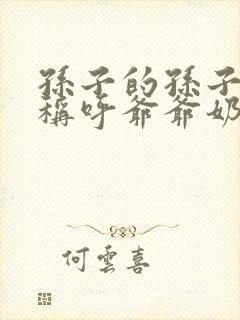 孫子的孫子
稱呼爺爺奶
何雲喜